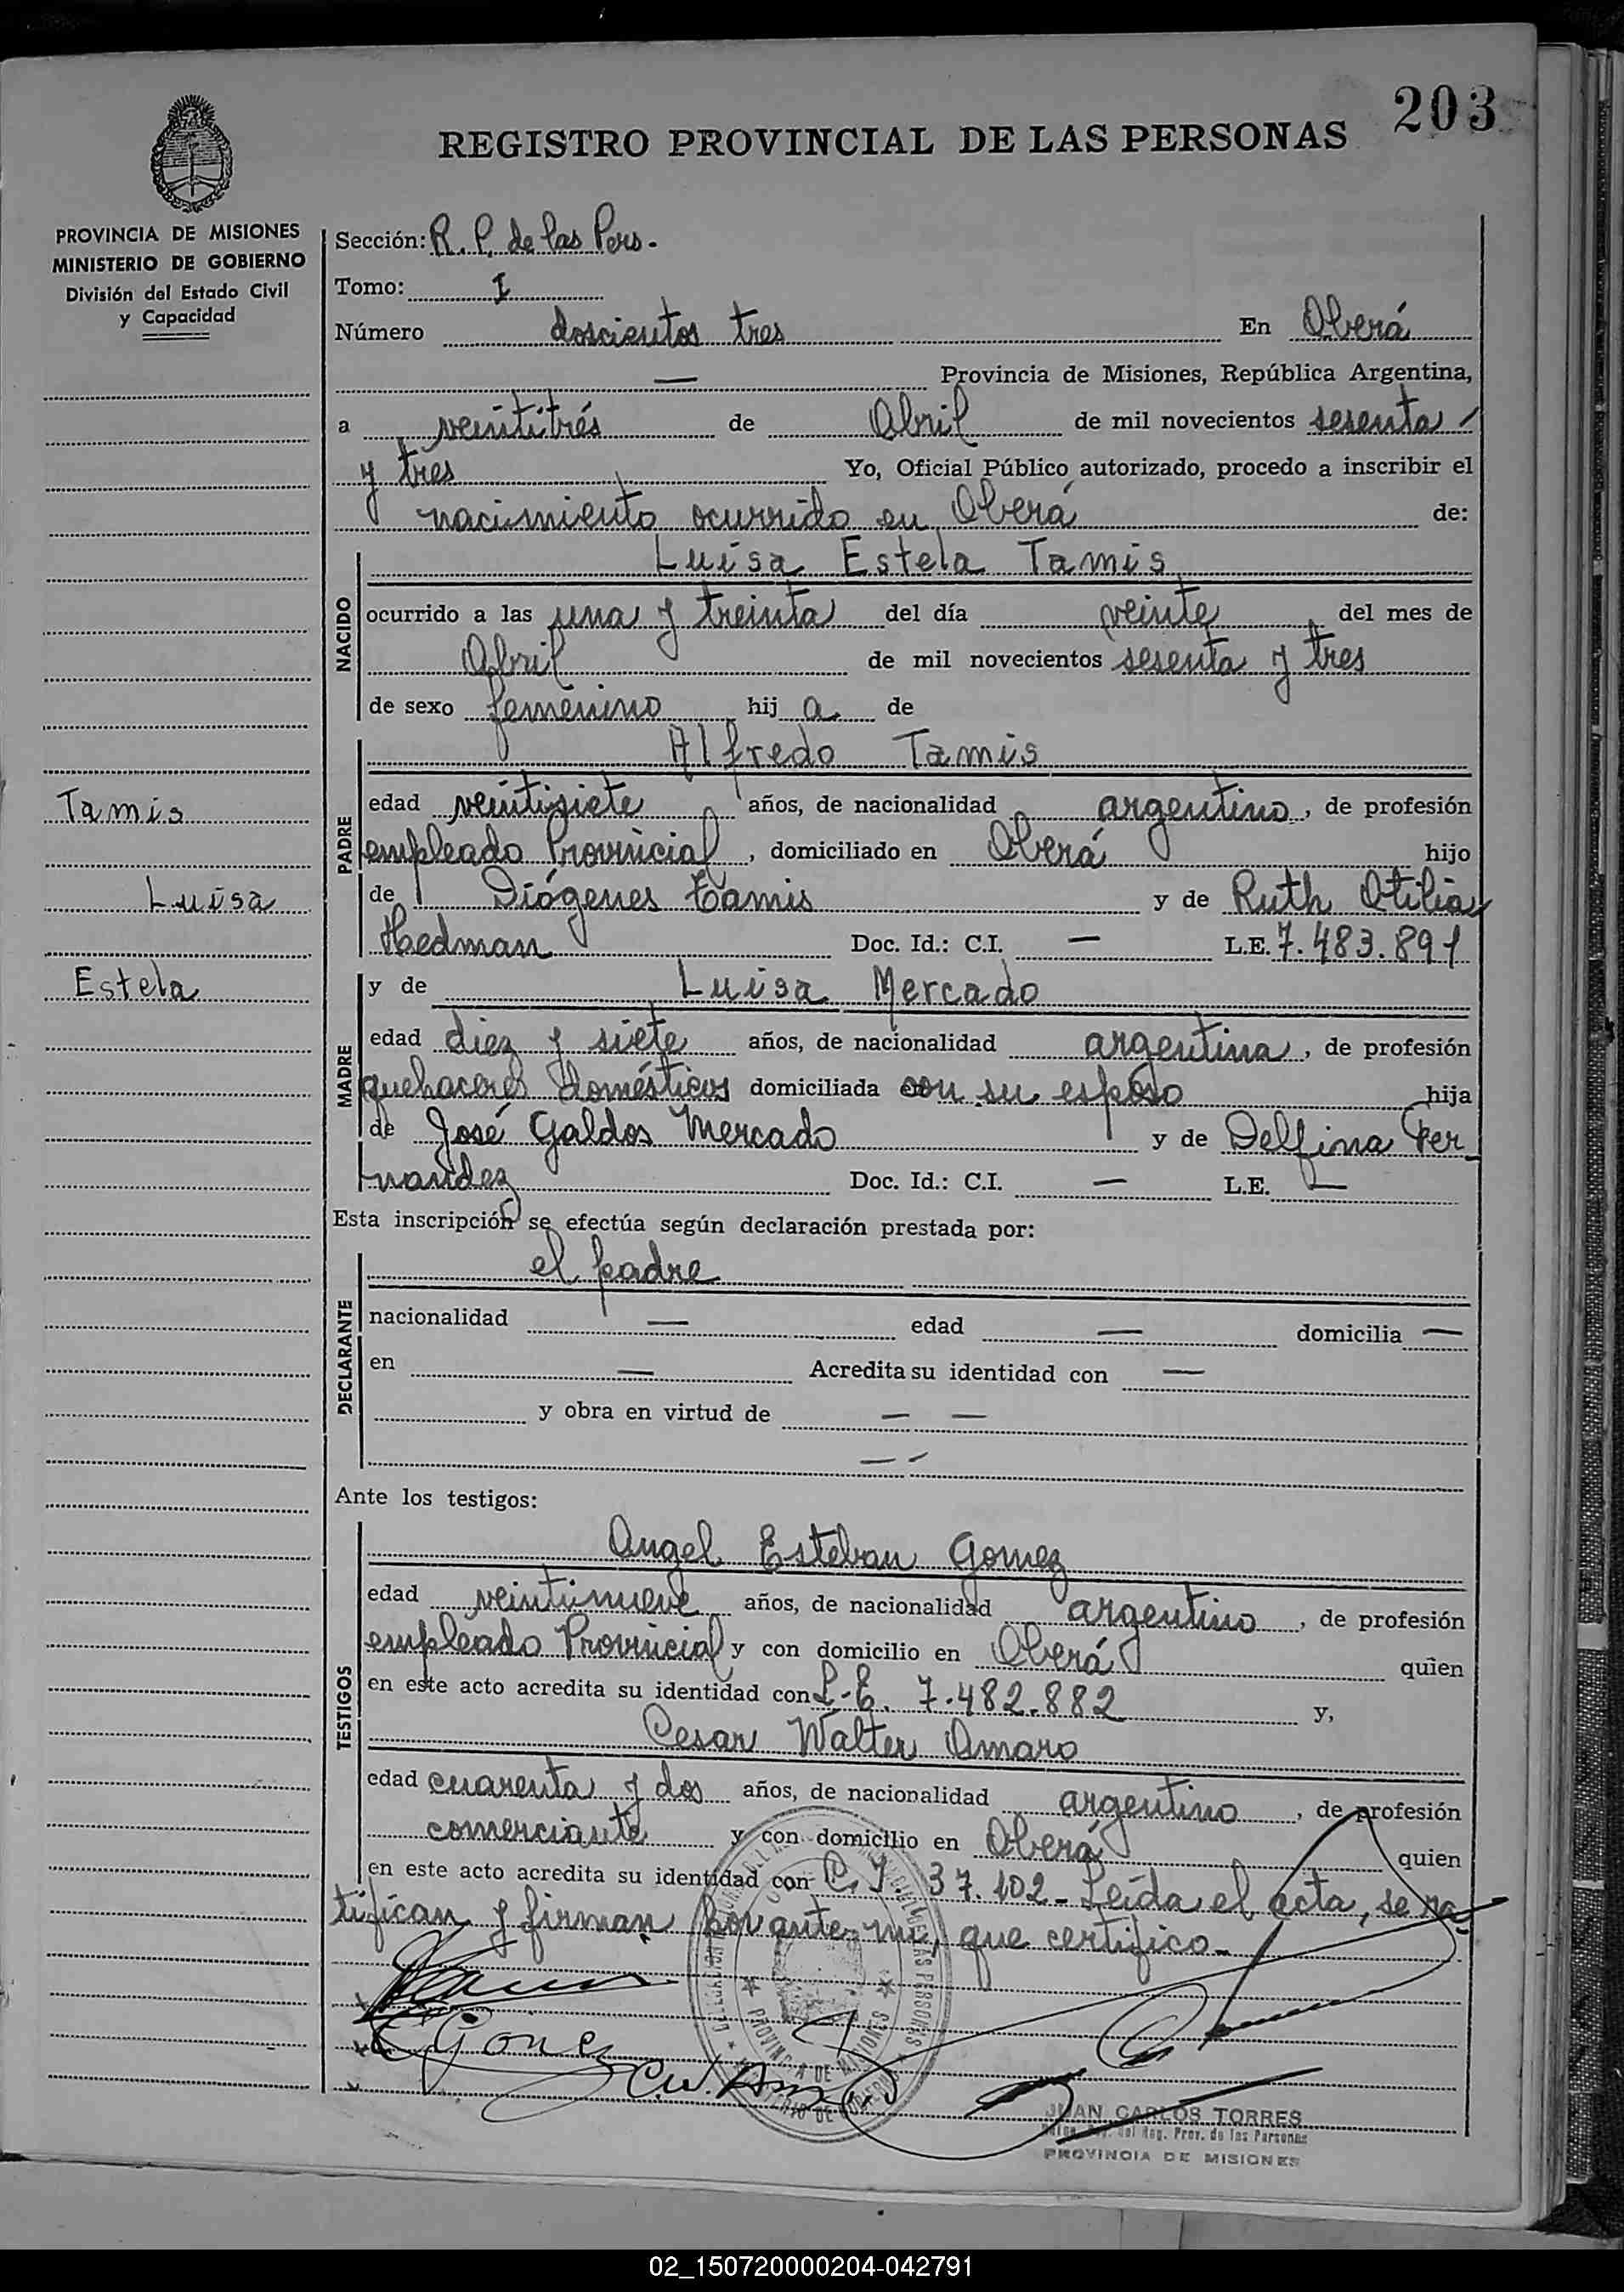 203
REGISTRO PROVINCIAL DE LAS PERSONAS
PROVINCIA DE MISIONES
MINISTERIO DE GOBIERNO
División del Estado Civil
y Capacidad
Sección: R. P. de las Pers.
Tomo: I
Número doscientos tres En Oberá
— Provincia de Misiones, República Argentina,
a veintitrés de Abril de mil novecientos sesenta
y tres Yo, Oficial Público autorizado, procedo a inscribir el
nacimiento ocurrido en Oberá de:
NACIDO
Luisa Estela Tamis
ocurrido a las una y treinta del día veinte del mes de
Abril de mil novecientos sesenta y tres
de sexo femenino hij a de
PADRE
Alfredo Tamis
edad veintisiete años, de nacionalidad argentino, de profesión
empleado Provincial, domiciliado en Oberá hijo
de Diógenes Tamis y de Ruth Otilia
Hedman Doc. Id.: C.I. — L.E. 7.483.891
Tamis
Luisa
Estela
MADRE
y de Luisa Mercado
edad diez y siete años, de nacionalidad argentina, de profesión
quehaceres domésticos domiciliada con su esposo hija
de José Galdos Mercado y de Delfina Fer
nandez Doc. Id.: C.I. — L.E. —
Esta inscripción se efectúa según declaración prestada por:
DECLARANTE
el padre
nacionalidad — edad — domicilia —
en — Acredita su identidad con —
y obra en virtud de — —
— –
Ante los testigos:
TESTIGOS
Angel Esteban Gomez
edad veintinueve años, de nacionalidad argentino, de profesión
empleado Provincial y con domicilio en Oberá quien
en este acto acredita su identidad con L.E. 7.482.882 y,
Cesar Walter Amaro
edad cuarenta y dos años, de nacionalidad argentino, de profesión
comerciante y con domicilio en Oberá quien
en este acto acredita su identidad con C.I. 37.102_ Leída el acta, se ra
tifican y firman por ante mi, que certifico_
Gomez
C.W.
PROVINCIA DE MISIONES
JUAN CARLOS TORRES
del Reg. Prov. de las Personas
PROVINCIA DE MISIONES
02_150720000204-042791